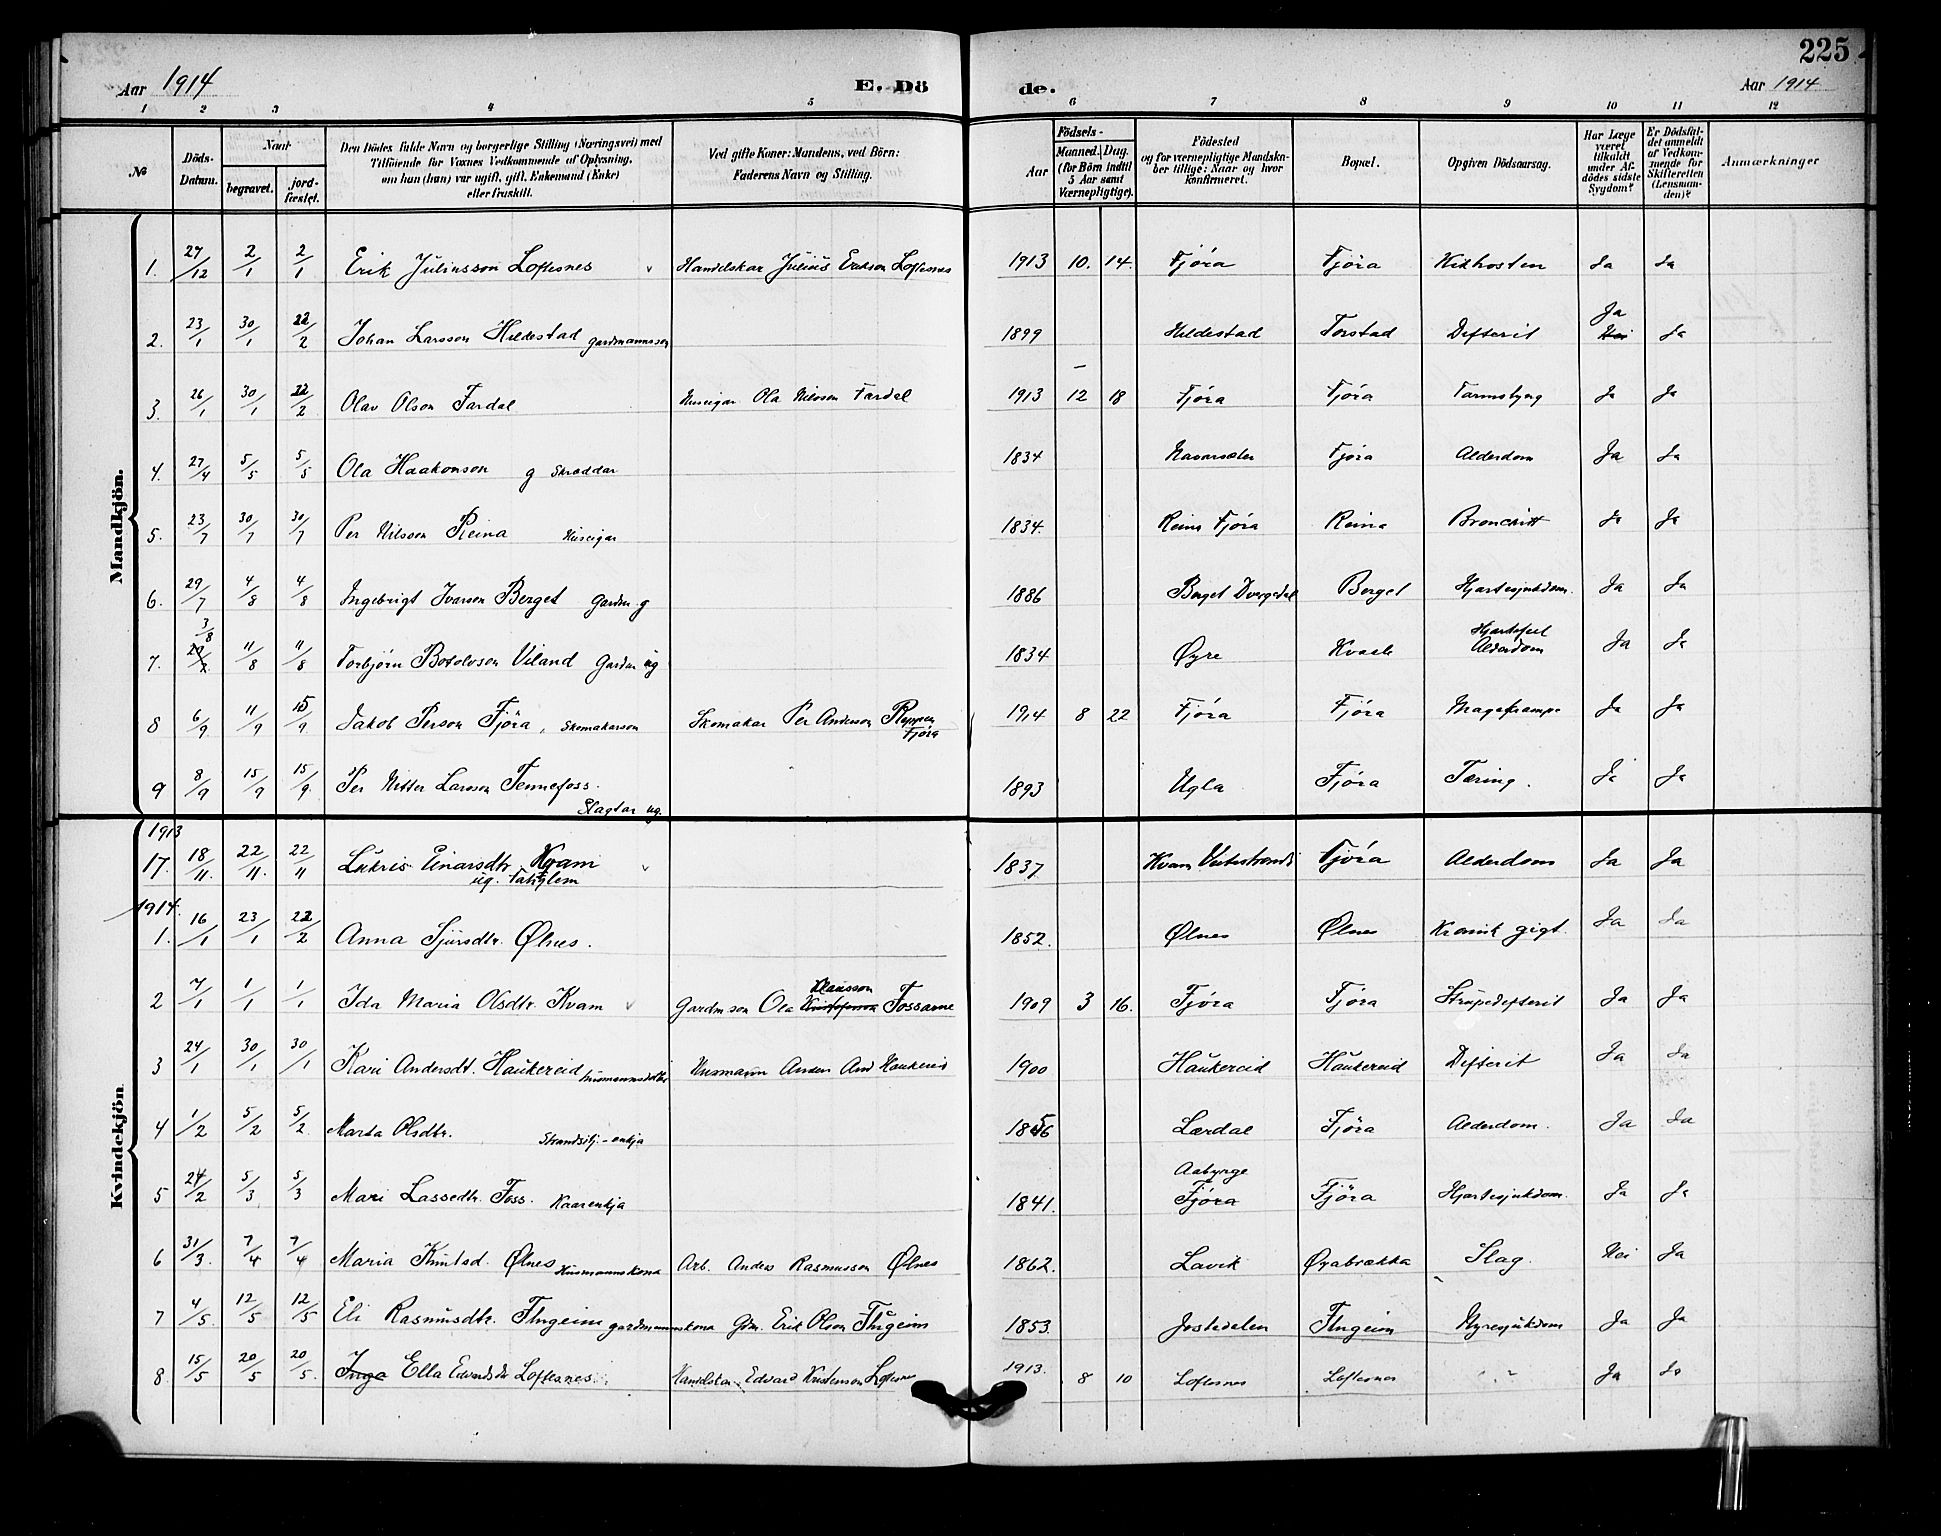 225
Aar 1914
E. Dö
de.
Aar 1914
1 2 3 4 5 6 7 8 9 10 11 12
№
Döds-Datum.
Naar
begravet.
jord-fæstet.
Den Dödes fulde Navn og borgerlige Stilling (Næringsvei) med
Tilföiende for Voxnes Vedkommende af Oplysning,
om han (hun) var ugift, gift, Enkemand (Enke)
eller fraskilt.
Ved gifte Koner: Mandens, ved Börn:
Faderens Navn og Stilling.
Födsels-
Aar
Maaned. Dag.
(for Börn indtil
5 Aar samt
Værnepligtige).
Födested
og for værnepligtige Mandska-
ber tillige: Naar og hvor
konfirmeret.
Bopæl.
Opgiven Dödsaarsag.
Har Læge
været
tilkaldt
under Af-
dödes sidste
Sygdom?
Er Dödsfal-
det anmeldt
af Vedkom-
mende for
Skifteretten
(Lensman-
den)?
Anmærkninger
Mandkjön.
1. 27/12 2/1 2/1 Erik Juliusson Loftesnes v Handelskar Julius Erikson Loftesnes 1913 10. 14. Fjöra Fjöra Kikhosten Ja Ja
2. 23/1 30/1 22/2 Johan Larsson Hildestad gardmannsson 1899 Hildestad Torstad Difterit Ja Nei Ja
3. 26/1 30/1 22/2 Olav Olson Fardal Huseigar Ola Nilsson Fardal 1913 12 18 Fjöra Fjöra Tarmslyng Ja Ja
4. 27/4 5/5 5/5 Ola Haakonson g Skræddar 1834 Navarsæter Fjöra Alderdom Ja Ja
5. 23/7 30/7 30/7 Per Nilsson Reina Huseigar 1834. Reina Fjöra Reina Bronchitt Ja Ja
6. 29/7 4/8 4/8 Ingebrigt Ivarson Berget Gardm g 1886 Berget Dvergedal Berget Hjartesjukdom. Ja Ja
3/8
7. 29/2 11/8 11/8 Torbjörn Botolvson Viland Gardm ug 1834 Øyre Kvaale Hjartefeil Alderdom Ja Ja
8 6/9 11/9 15/9. Jakob Person Fjöra, Skomakarson Skomakar Per Anderson Reppen Fjöra 1914 8 22 Fjöra Fjöra Magekrampe Ja Ja
9 8/9 15/9 15/9. Per Nitter Larsson Tennefoss. Slagtar ug. 1893 Ugla Fjöra Tæring. Ja Ja
Kvindekjön
1913
17. 18/11. 22/11. 22/11 Lukris Einarsdtr. Kvam v ug. Fattiglem 1837 Kvam Veitestrand Fjöra Alderdom Ja Ja
1914.
1. 16/1 23/1 22/2 Anna Sjursdtr. Ølnes. 1852. Ølnes Ølnes Kronisk gigt. Ja Ja
2 7/1 1/1 1/1 Ida Maria Olsdtr. Kvam v Gardm.son Ola Kristoferson Klausson Fossanne 1909 3 16. Fjöra Fjöra Strupedifterit Ja Ja
3 24/1 30/1 30/1 Kari Andersdt. Haukereid husmannsdotter Husmann Anders And Haukereid 1900 Haukereid Haukereid Difterit Ja Ja
4 1/2 5/2 5/2. Marta Olsdtr. Strandsitj-enkja 1856 Lærdal Fjöra Alderdom. Ja Ja
5 24/2 5/3 5/3 Mari Lassedtr. Foss. Kaarenkja 1841. Aabyrge Fjöra Fjöra Hjartesjukdom. Ja Ja
6 31/3. 7/4 7/4 Maria Knutsd. Ølnes Husmannskona Arb. Anders Rasmusson Ølnes 1862. Lavik Øyabrækka Slag. Nei Ja
7 4/5. 12/5 12/5 Eli Rasmusdtr. Flugeim gardmannskona Gdm. Erik Olson Flugeim 1853. Jostedalen Flugeim Nyresjukdom Ja Ja
8. 15/5 20/5 20/5. Inga Ella Edvardsdtr Loftesnes. Handelskar Edvard Kristenson Loftesnes 1913. 8 10 Loftesnes Loftesnes Ja Ja